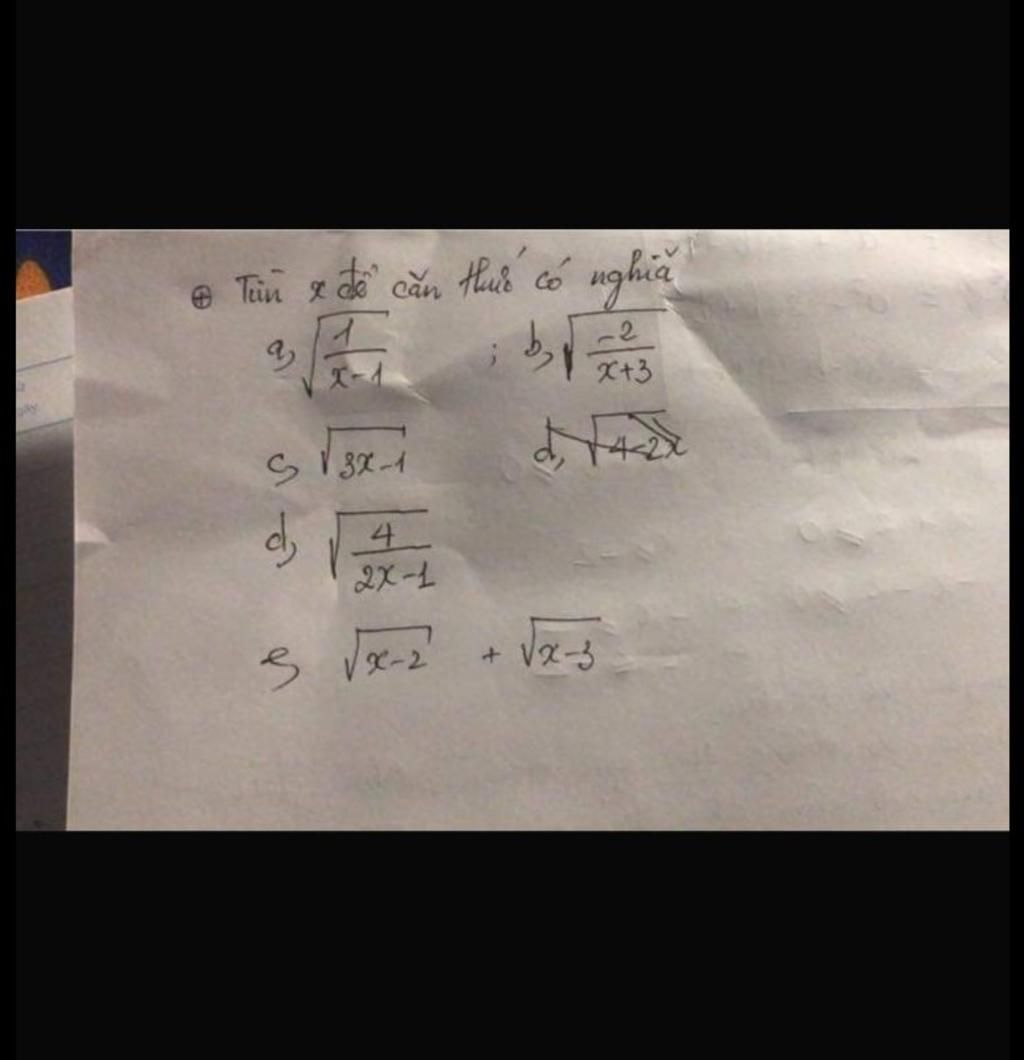 ⊕ Tìm x để căn thức có nghĩa
a, √(1/(x-1)) ; b, √(-2/(x+3))
c, √(3x-1) d, √(4-2x)
d, √(4/(2x-1))
e, √(x-2) + √(x-3)